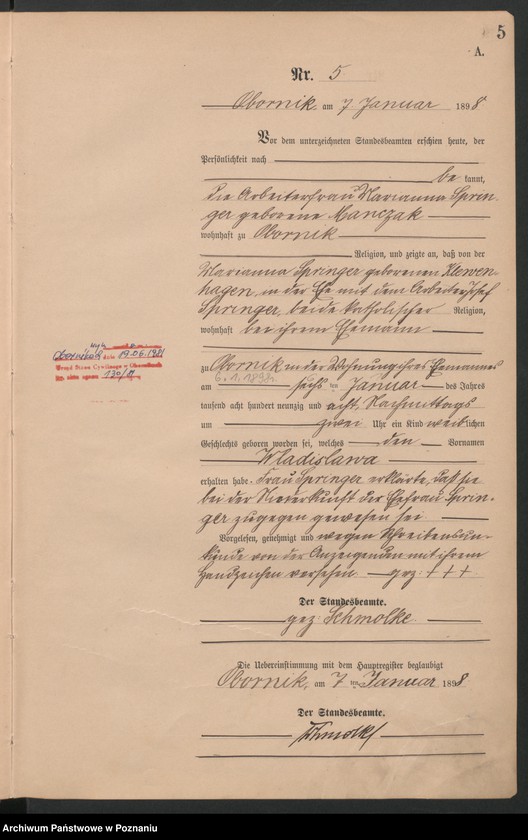 5
A.
Nr. 5
Obornik, am 7 Januar 1898
Vor dem unterzeichneten Standesbeamten erschien heute, der
Persönlichkeit nach
be kannt,
die Arbeiterfrau Marianna Sprin-
ger geborene Manczak
wohnhaft zu Obornik
Religion, und zeigte an, daß von der
Marianna Springer geborenen Klewen-
hagen, in der Ehe mit dem Arbeiter Josef
Springer, beide katholischer Religion,
wohnhaft bei ihrem Ehemann
zu Obornik in der Wohnung ihres Ehemannes
6.1.1898r.
am sechs ten Januar des Jahres
tausend acht hundert neunzig und acht, Nachmittags
um zwei Uhr ein Kind weiblichen
Geschlechts geboren worden sei, welches den Vornamen
Wladislawa
erhalten habe. Frau Springer erklärte, daß sie
bei der Niederkunft der Ehefrau Sprin-
ger zugegen gewesen sei.
Vorgelesen, genehmigt und wegen Schreibensun-
kunde von der Anzeigenden mit ihrem
Handzeichen versehen. gez: + + +
Der Standesbeamte.
gez: Schmolke
Die Uebereinstimmung mit dem Hauptregister beglaubigt
Obornik, am 7 ten Januar 1898
Der Standesbeamte.
Schmolke
dnia 19.06.1981
Urząd Stanu Cywilnego w Obornikach
130/81
Archiwum Państwowe w Poznaniu